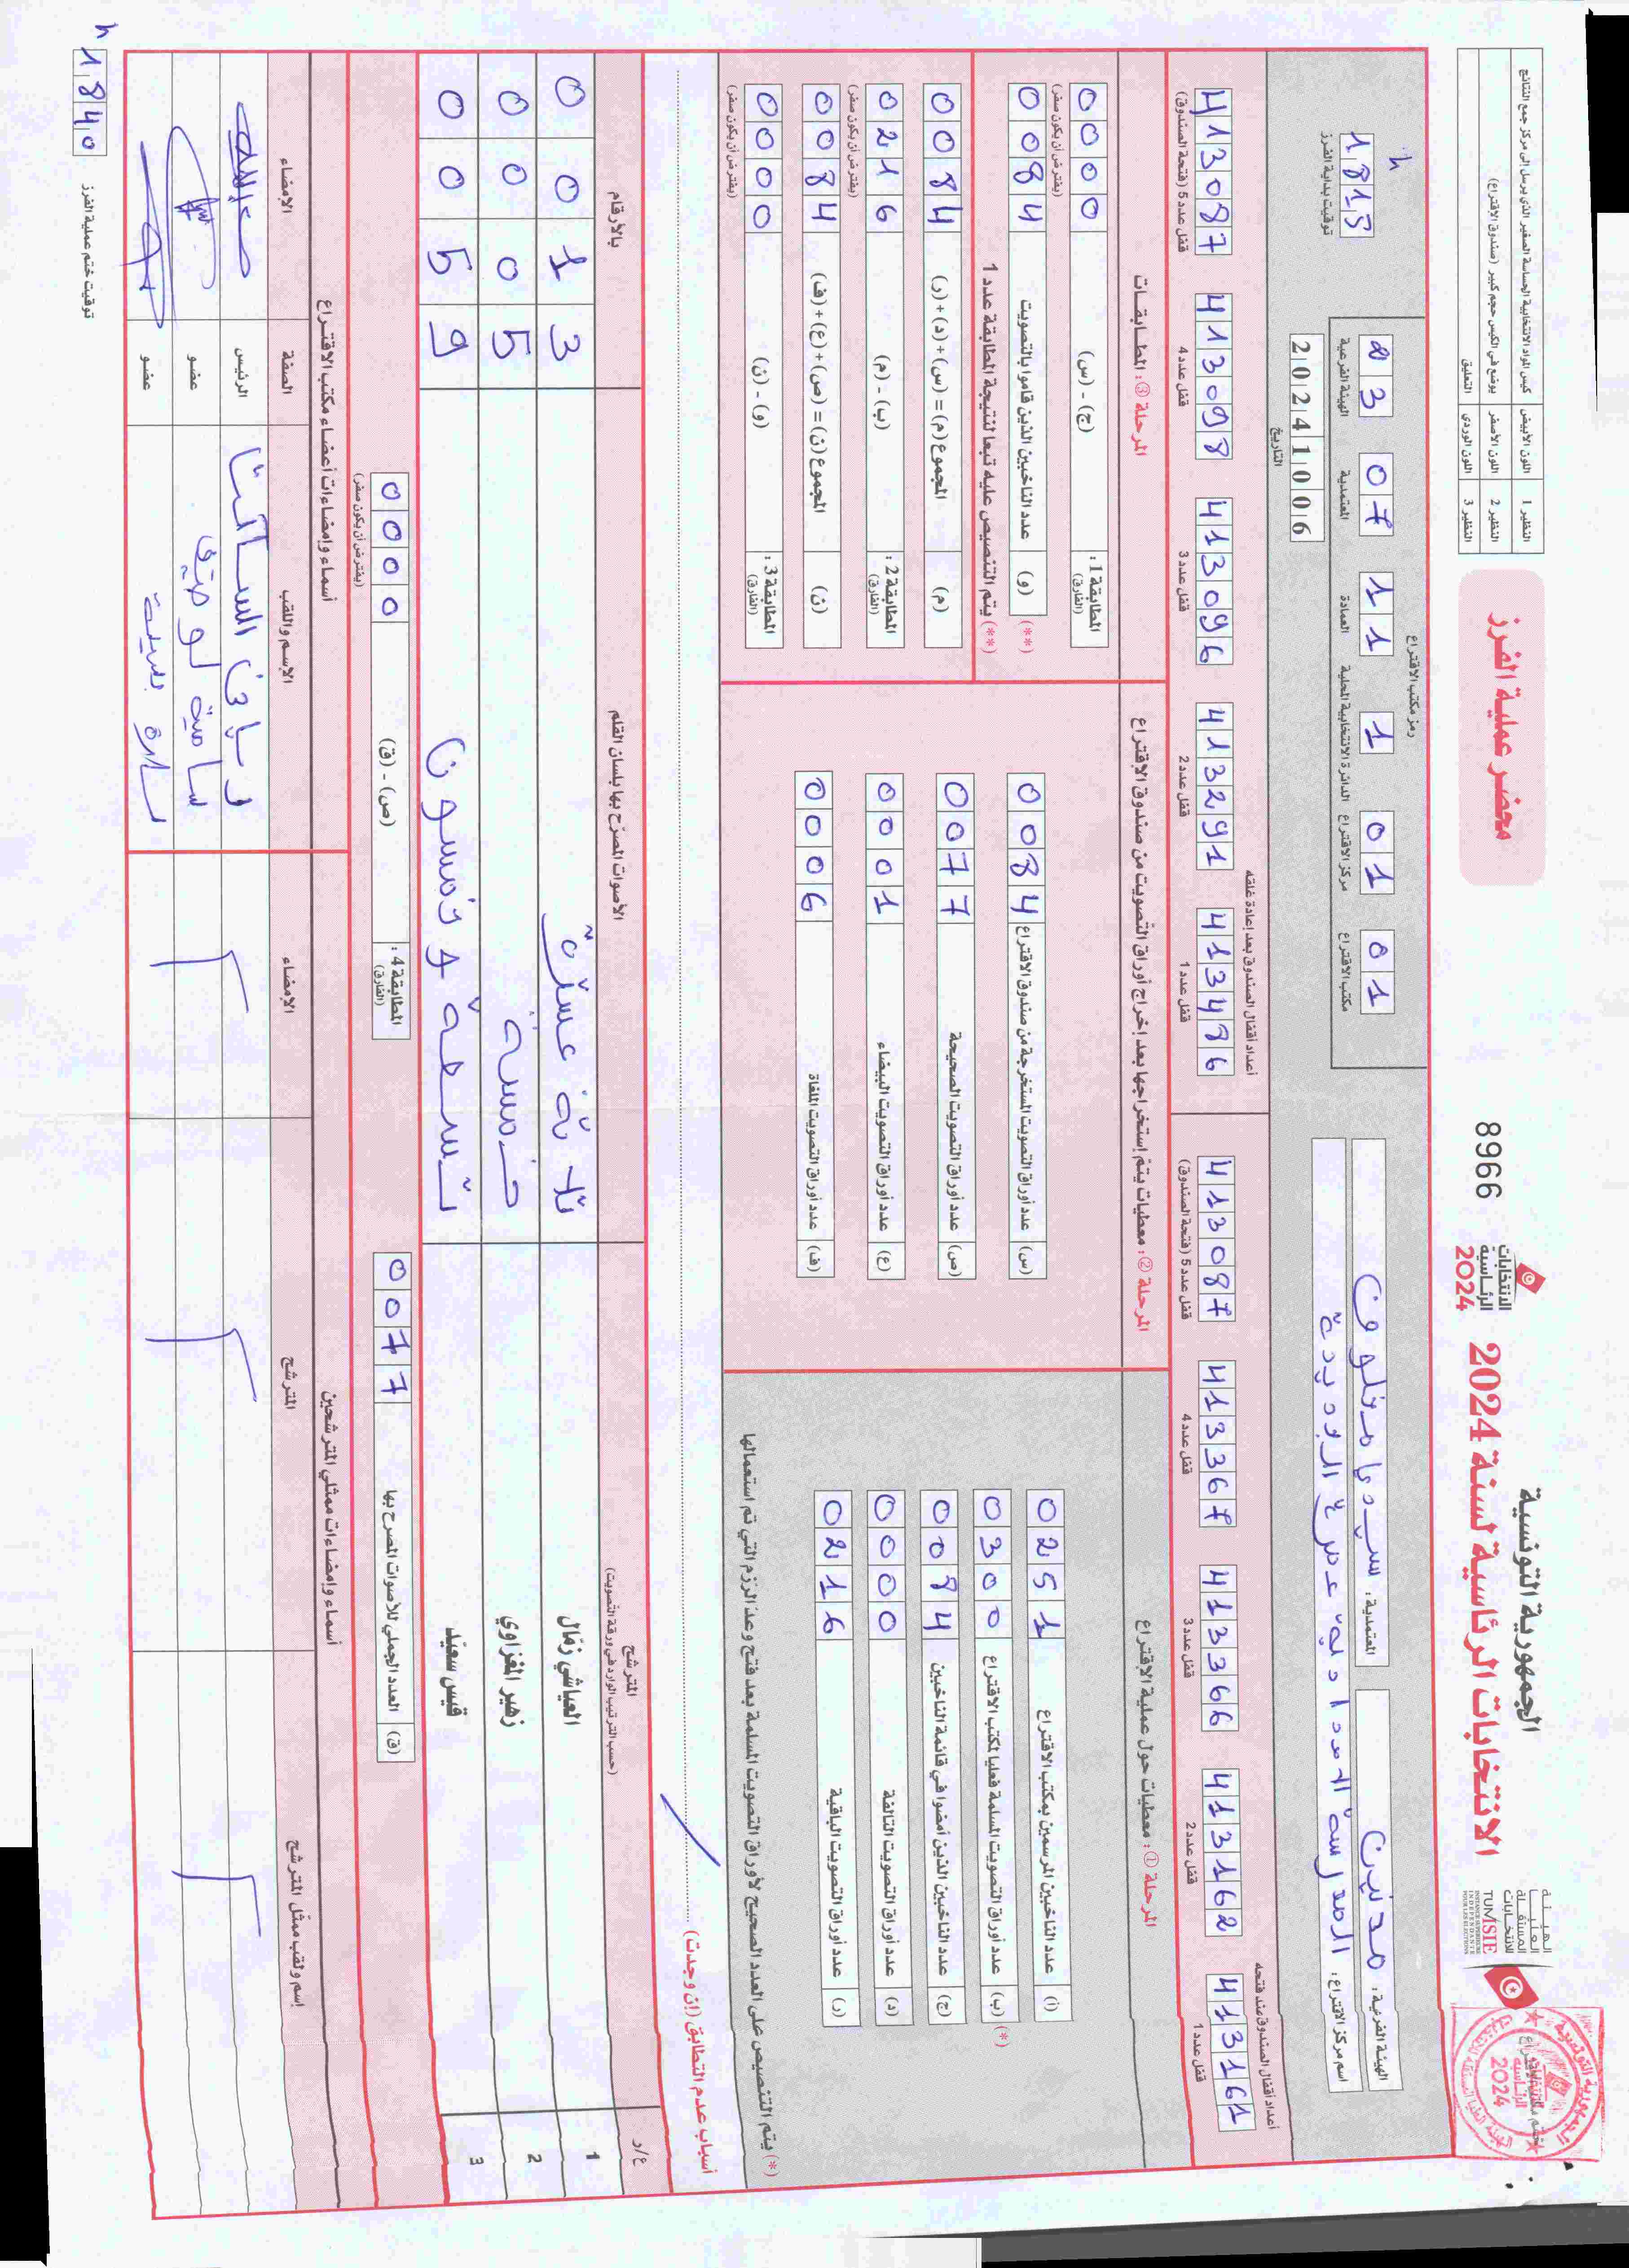 الجمهورية التونسية
الانتخابات الرئاسية لسنة 2024
الانتخابات الرئاسية 2024
8966
محضر عملية الفرز
الهيئة العليا المستقلة للانتخابات
TUNISIE
النظير 1 اللون الأبيض كيس المواد الانتخابية الحساسة الصغير الذي يرسل إلى مركز جمع النتائج
النظير 2 اللون الأصفر يوضع في الكيس حجم كبير (صندوق الاقتراع)
النظير 3 اللون الوردي التعليق
الهيئة الفرعية: مدنين
المعتمدية: سيدي مخلوف
اسم مركز الاقتراع:
رمز مكتب الاقتراع
23 07 11 1 01 01
الهيئة الفرعية المعتمدية العمادة الدائرة الانتخابية المحلية مركز الاقتراع مكتب الاقتراع
20241006
التاريخ
h 1815
توقيت بداية الفرز
أعداد أقفال الصندوق عند فتحه
413161 4133162 4133366 4133367 4133087
قفل عدد 1 قفل عدد 2 قفل عدد 3 قفل عدد 4 قفل عدد 5 (فتحة الصندوق)
أعداد أقفال الصندوق بعد إعادة غلقه
4133486 4133291 4133096 4133098 4133087
قفل عدد 1 قفل عدد 2 قفل عدد 3 قفل عدد 4 قفل عدد 5 (فتحة الصندوق)
المرحلة ①: معطيات حول عملية الاقتراع
(أ) عدد الناخبين المرسمين بمكتب الاقتراع 0251
(*) (ب) عدد أوراق التصويت المسلمة فعليا لمكتب الاقتراع 0300
(ج) عدد الناخبين الذين أمضوا في قائمة الناخبين 0084
(د) عدد أوراق التصويت التالفة 0000
(ر) عدد أوراق التصويت الباقية 0216
(*) يتم التنصيص على العدد الصحيح لأوراق التصويت المسلمة بعد فتح وعد الرزم التي تم استعمالها
المرحلة ②: معطيات يتم إستخراجها بعد إخراج أوراق التصويت من صندوق الاقتراع
(س) عدد أوراق التصويت المستخرجة من صندوق الاقتراع 0084
(ص) عدد أوراق التصويت الصحيحة 0077
(ع) عدد أوراق التصويت البيضاء 0001
(ف) عدد أوراق التصويت الملغاة 0006
المرحلة ③: المطابقات
المطابقة 1: (الفارق) (ج) - (س) 0000
(يفترض أن يكون صفر)
(**) (و) عدد الناخبين الذين قاموا بالتصويت 0084
(**) يتم التنصيص عليه تبعا لنتيجة المطابقة عدد 1
(م) المجموع (م) = (س)+(د)+(ر) 0084
المطابقة 2: (الفارق) (ب) - (م) 0216
(يفترض أن يكون صفر)
(ن) المجموع (ن) = (ص)+(ع)+(ف) 0084
المطابقة 3: (الفارق) (و) - (ن) 0000
(يفترض أن يكون صفر)
أسباب عدم التطابق (إن وجدت)
ع/ر المترشح (حسب الترتيب الوارد في ورقة التصويت) الأصوات المصرّح بها بلسان القلم بالأرقام
1 العياشي زمّال ثلاثة عشرة 0013
2 زهير المغزاوي خمسة 0005
3 قيس سعيّد تسعة وخمسون 0059
(ق) العدد الجملي للأصوات المصرح بها 0077
المطابقة 4: (الفارق) (ص) - (ق) 0000
(يفترض أن يكون صفر)
أسماء وإمضاءات ممثلي المترشحين
إسم ولقب ممثّل المترشح المترشح الإمضاء
أسماء وإمضاءات أعضاء مكتب الاقتراع
الإسم واللقب الصفة الإمضاء
الرئيس
عضو
عضو
h 1840 توقيت ختم عملية الفرز